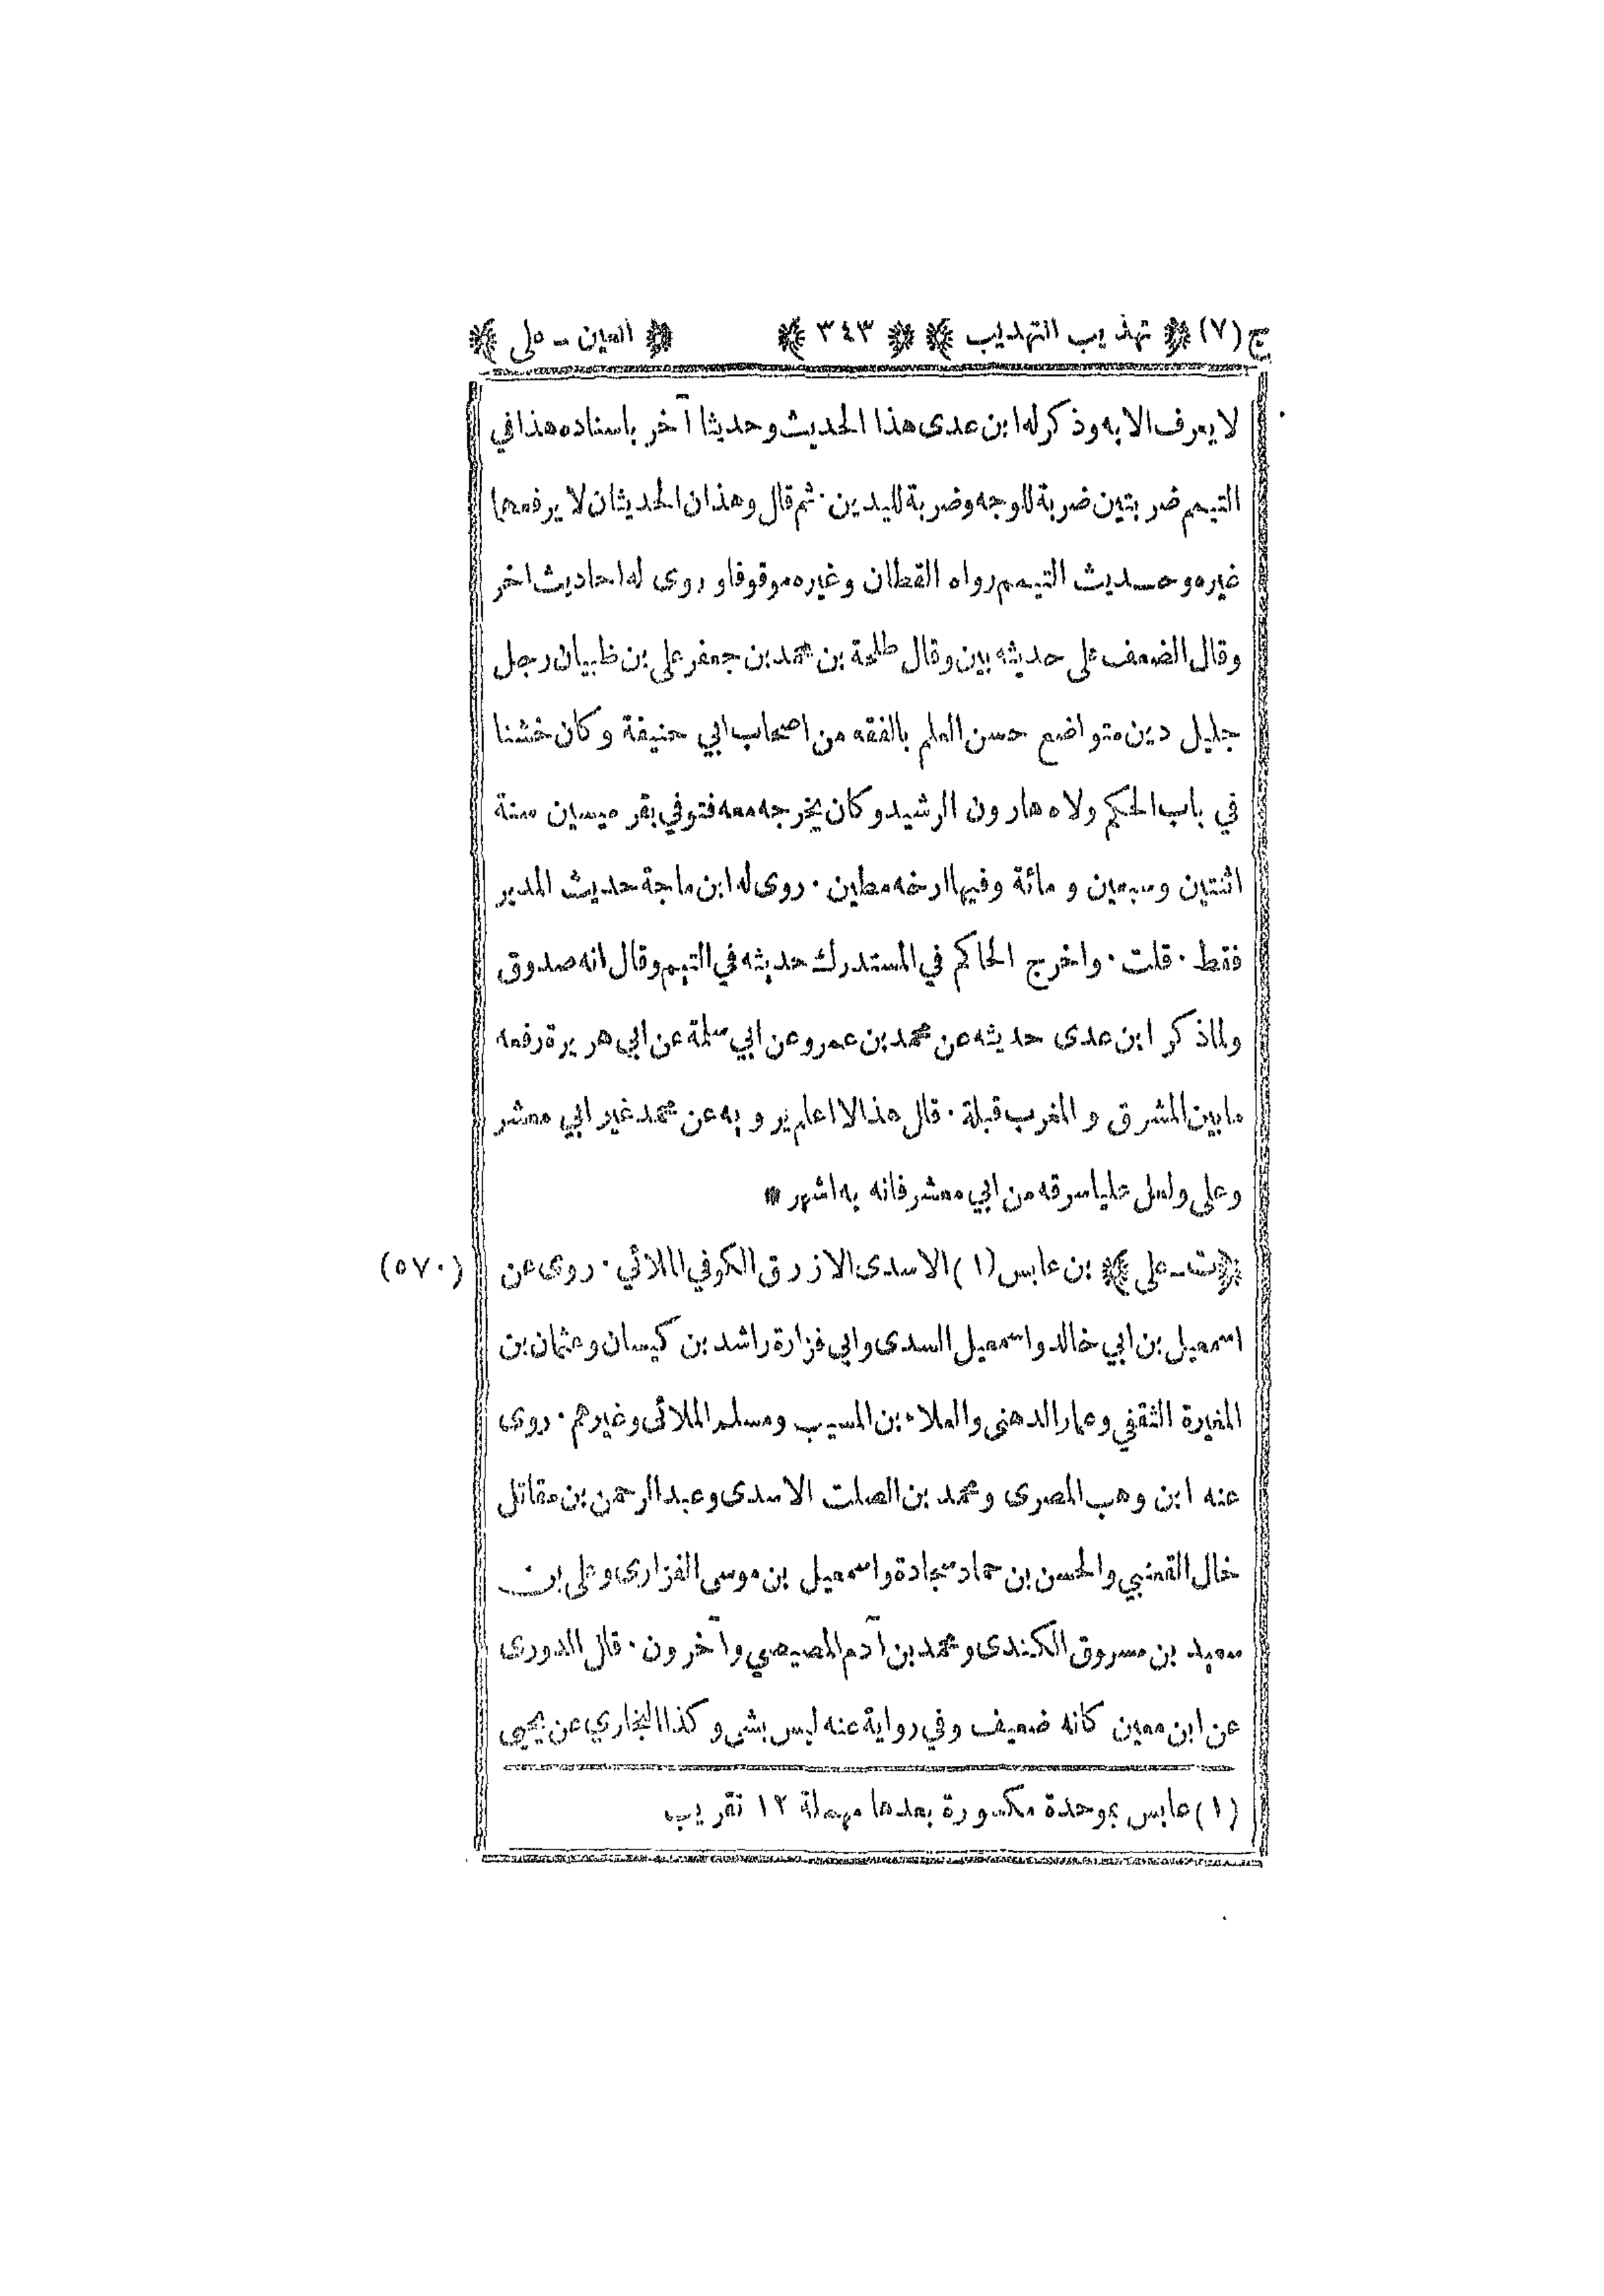 ج (٧) ﴿ تهذيب التهذيب ﴾ ﴿ ٣٤٣ ﴾ ﴿ العين - على ﴾
لا يعرف الا به وذكر له ابن عدى هذا الحديث وحديثا آخر باسناده هذا في
التيمم ضربتين ضربة للوجه وضربة لليدين · ثم قال وهذان الحديثان لا يرفعهما
غيره وحديث التيمم رواه القطان وغيره موقوفا وروى له احاديث اخر
وقال الضعف على حديثه بين وقال طلحة بن محمد بن جعفر على بن ظبيان رجل
جليل دين متواضع حسن العلم بالفقه من اصحاب ابي حنيفة وكان خشنا
في باب الحكم ولاه هارون الرشيد وكان يخرجه معه فتوفي بقرميسين سنة
اثنتين وسبعين ومائة وفيها ارخه مطين · روى له ابن ماجة حديث المدبر
فقط · قلت · واخرج الحاكم في المستدرك حديثه في التيمم وقال انه صدوق
ولما ذكر ابن عدى حديثه عن محمد بن عمرو عن ابي سلمة عن ابى هريرة رفعه
ما بين المشرق والمغرب قبلة · قال هذا لا اعلم يرويه عن محمد غير ابي معشر
وعلى ولعل عليا سرقه من ابي معشر فانه به اشهر *
﴿ ت - على ﴾ بن عابس (١) الاسدى الازرق الكوفي الملائي · روى عن (٥٧٠)
اسمعيل بن ابي خالد واسمعيل السدى وابي فزارة راشد بن كيسان وعثمان بن
المغيرة الثقفي وعمار الدهنى والعلاء بن المسيب ومسلم الملائى وغيرهم · روى
عنه ابن وهب المصرى ومحمد بن الصلت الاسدى وعبد الرحمن بن مقاتل
خال القعنبي والحسن بن حماد سجادة واسمعيل بن موسى الفزارى وعلى بن
سعيد بن مسروق الكندى ومحمد بن آدم المصيصي وآخرون · قال الدورى
عن ابن معين كانه ضعيف وفي رواية عنه ليس بشى وكذا البخاري عن يحيى
(١) عابس بموحدة مكسورة بعدها مهملة ١٢ تقريب